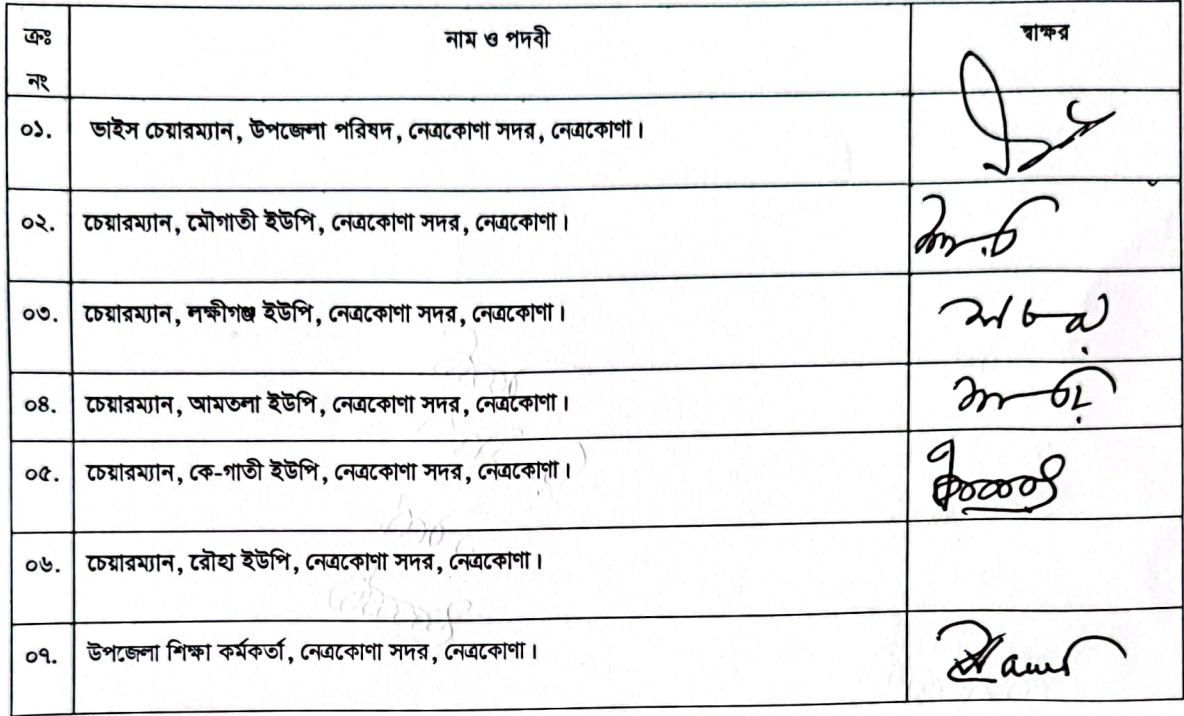 ক্রঃ নং নাম ও পদবী স্বাক্ষর
০১. ভাইস চেয়ারম্যান, উপজেলা পরিষদ, নেত্রকোণা সদর, নেত্রকোণা।
০২. চেয়ারম্যান, মৌগাতী ইউপি, নেত্রকোণা সদর, নেত্রকোণা।
০৩. চেয়ারম্যান, লক্ষীগঞ্জ ইউপি, নেত্রকোণা সদর, নেত্রকোণা।
০৪. চেয়ারম্যান, আমতলা ইউপি, নেত্রকোণা সদর, নেত্রকোণা।
০৫. চেয়ারম্যান, কে-গাতী ইউপি, নেত্রকোণা সদর, নেত্রকোণা।
০৬. চেয়ারম্যান, রৌহা ইউপি, নেত্রকোণা সদর, নেত্রকোণা।
০৭. উপজেলা শিক্ষা কর্মকর্তা, নেত্রকোণা সদর, নেত্রকোণা।